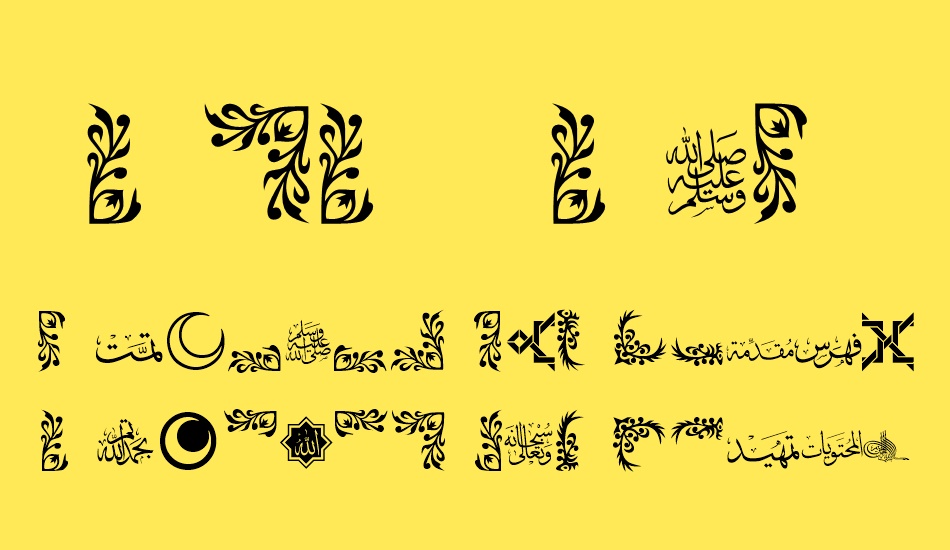 صلى الله عليه وسلم
تمت صلى الله عليه وسلم مقدمة فهرس
بحمد الله تعالى الله سبحانه وتعالى تمهيد المحتويات